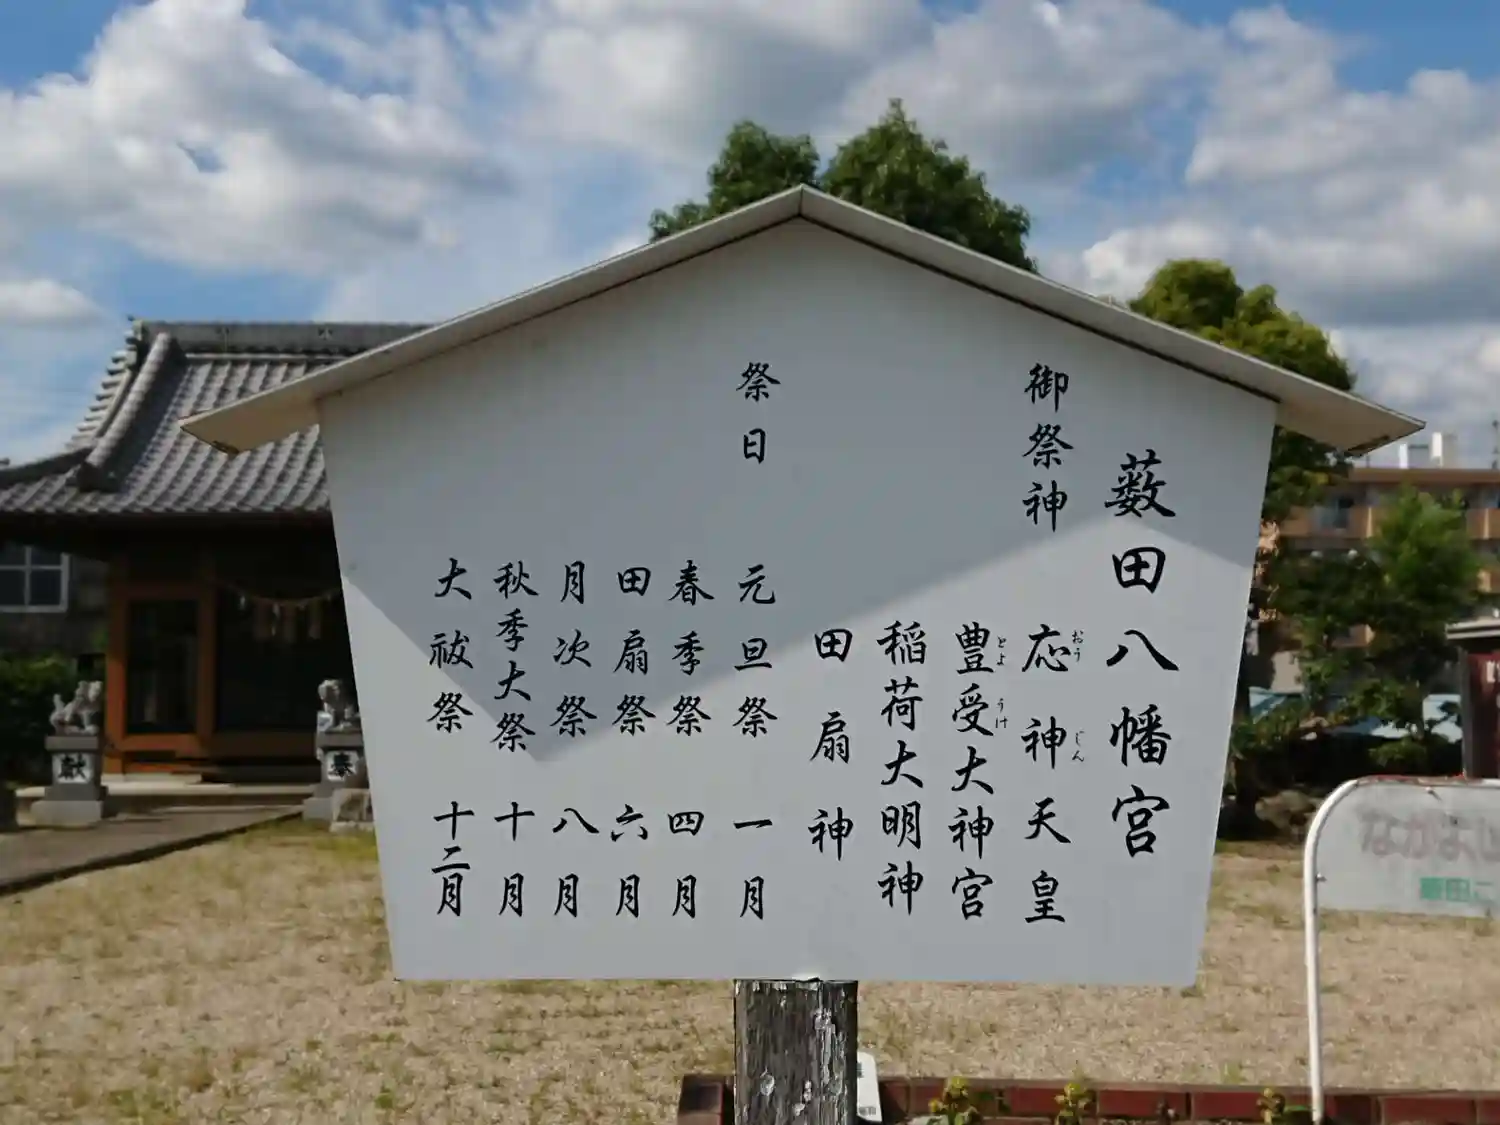 薮田八幡宮
御祭神
応神天皇
おう
じん
豊受大神宮
とよ
うけ
稲荷大明神
田扇神
祭日
元旦祭 一月
春季祭 四月
田扇祭 六月
月次祭 八月
秋季大祭 十月
大祓祭 十二月
献
奉